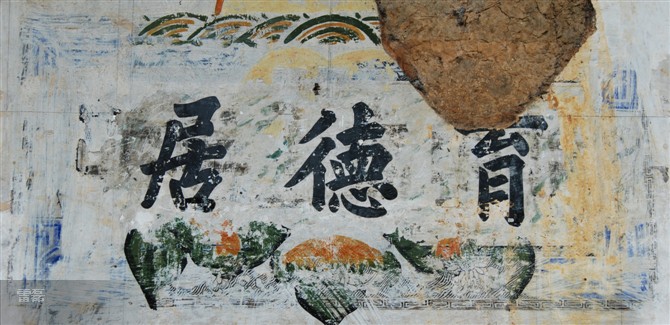 育德居